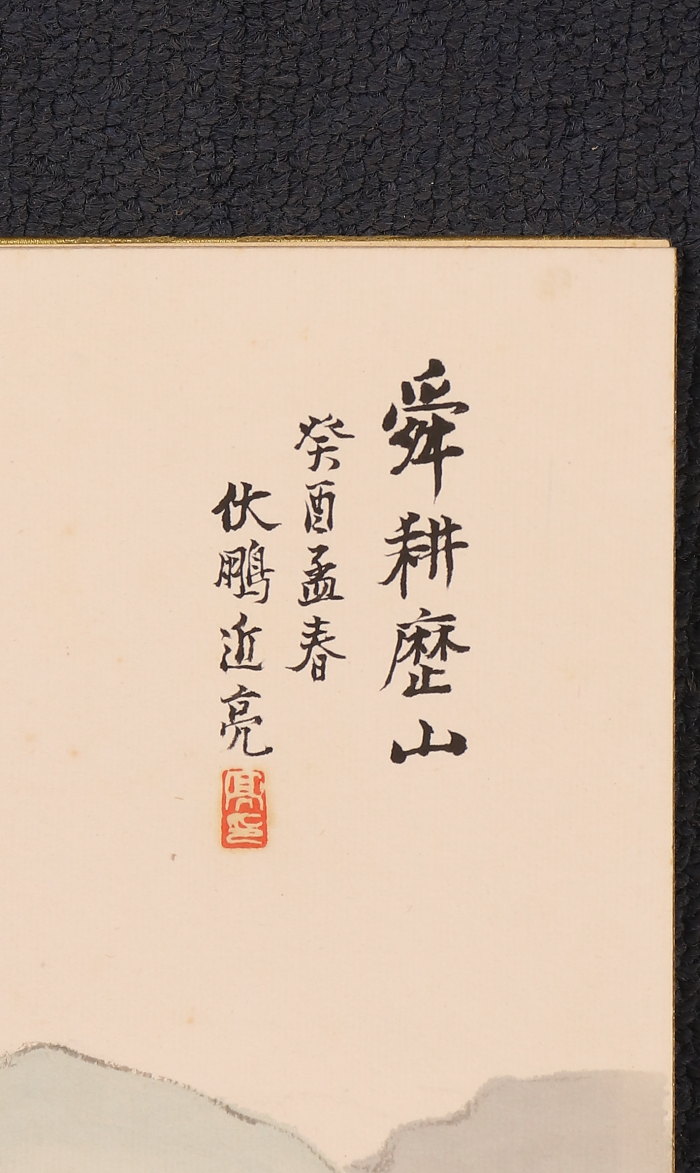 舜耕歷山
癸酉孟春
伏鵬近亮
亮印